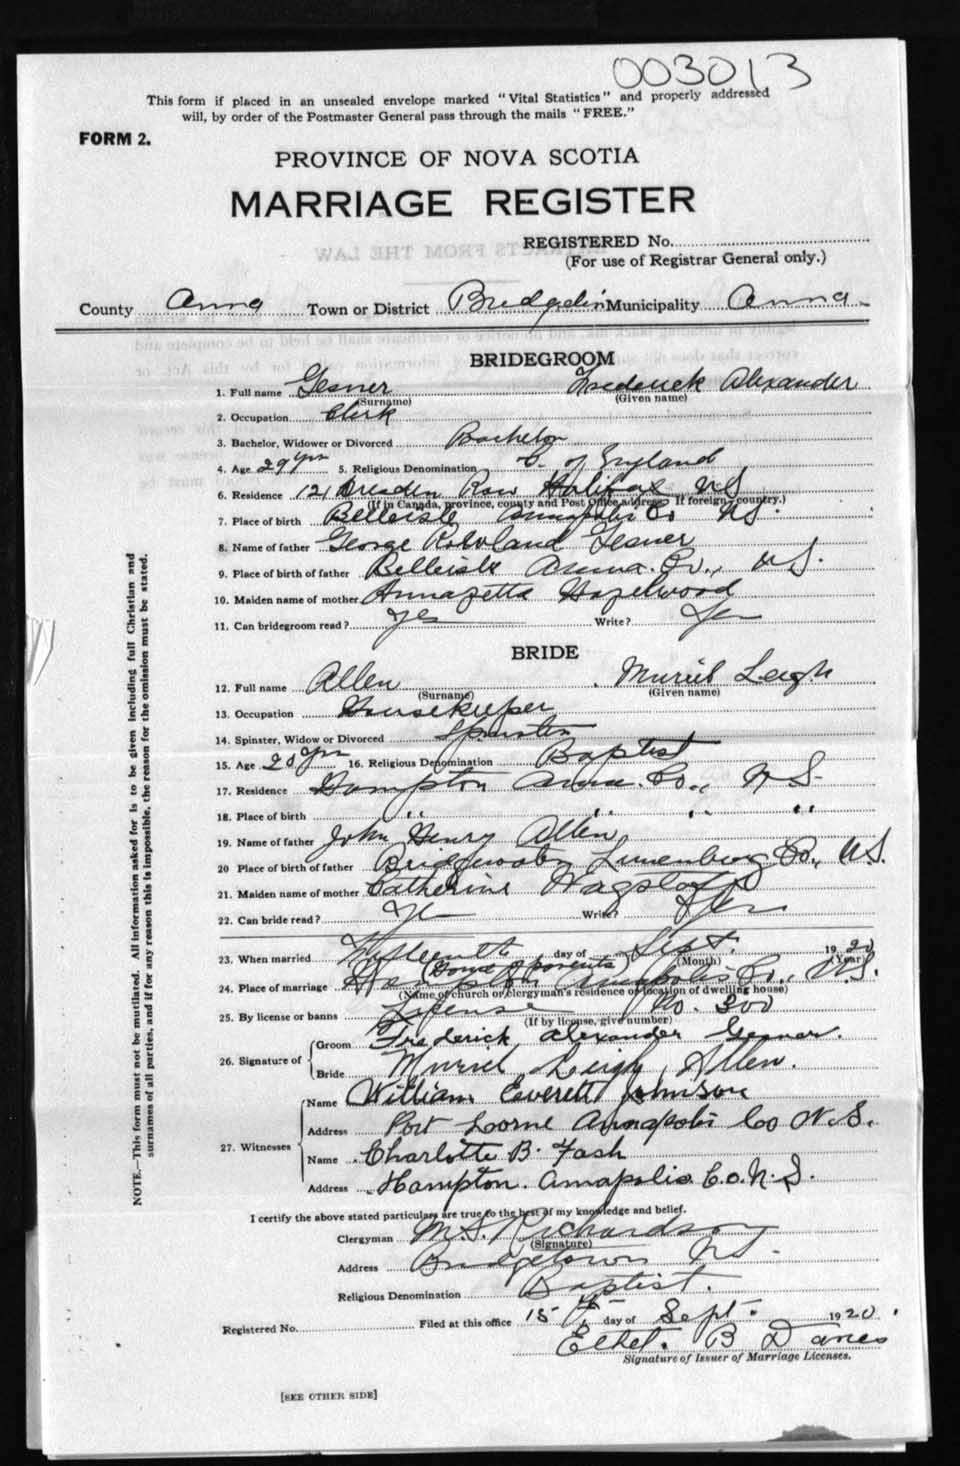 003013
This form if placed in an unsealed envelope marked "Vital Statistics" and properly addressed
will, by order of the Postmaster General pass through the mails "FREE."
FORM 2.
PROVINCE OF NOVA SCOTIA
MARRIAGE REGISTER
REGISTERED No.
(For use of Registrar General only.)
County Anna Town or District Municipality Anna.
BRIDEGROOM
1. Full name Gesner Frederick Alexander
(Surname) (Given name)
2. Occupation Clerk
3. Bachelor, Widower or Divorced Bachelor
4. Age 29 yrs 5. Religious Denomination C. of England
6. Residence 121 Dresden Row Halifax NS
(If in Canada, province, county and Post Office address. If foreign, country.)
7. Place of birth Belleisle Annapolis Co NS.
8. Name of father George Rowland Gesner
9. Place of birth of father Belleisle Anna. Co., NS.
10. Maiden name of mother Annazetta Hazelwood
11. Can bridegroom read? Yes Write? Yes
BRIDE
12. Full name Allen Muriel Leigh
(Surname) (Given name)
13. Occupation Housekeeper
14. Spinster, Widow or Divorced Spinster
15. Age yrs 16. Religious Denomination Baptist
17. Residence Hampton Anna. Co., NS.
18. Place of birth " " " "
19. Name of father John Henry Allen
20 Place of birth of father Bridgewater Lunenburg Co., NS.
21. Maiden name of mother Catherine Wagstaff
22. Can bride read? Yes Write? Yes
23. When married Fifteenth day of Sept. 1920
(Month) (Year)
(Home of parents)
24. Place of marriage Hampton Annapolis Co., N.S.
(Name of church or clergyman's residence or location of dwelling house)
25. By license or banns License No. 300
(If by license, give number)
26. Signature of Groom Frederick Alexander Gesner.
Bride Muriel Leigh Allen.
27. Witnesses Name William Everett Johnson
Address Port Lorne Annapolis Co N.S.
Name Charlotte B. Fash
Address Hampton. Annapolis. Co. N.S.
I certify the above stated particulars are true to the best of my knowledge and belief.
Clergyman M.S. Richardson
(Signature)
Address Bridgetown NS.
Religious Denomination Baptist.
Registered No. Filed at this office 15th day of Sept. 1920.
Ethel. B
Signature of Issuer of Marriage Licenses.
[SEE OTHER SIDE]
NOTE.—This form must not be mutilated. All information asked for is to be given including full Christian and
surnames of all parties, and if for any reason this is impossible, the reason for the omission must be stated.